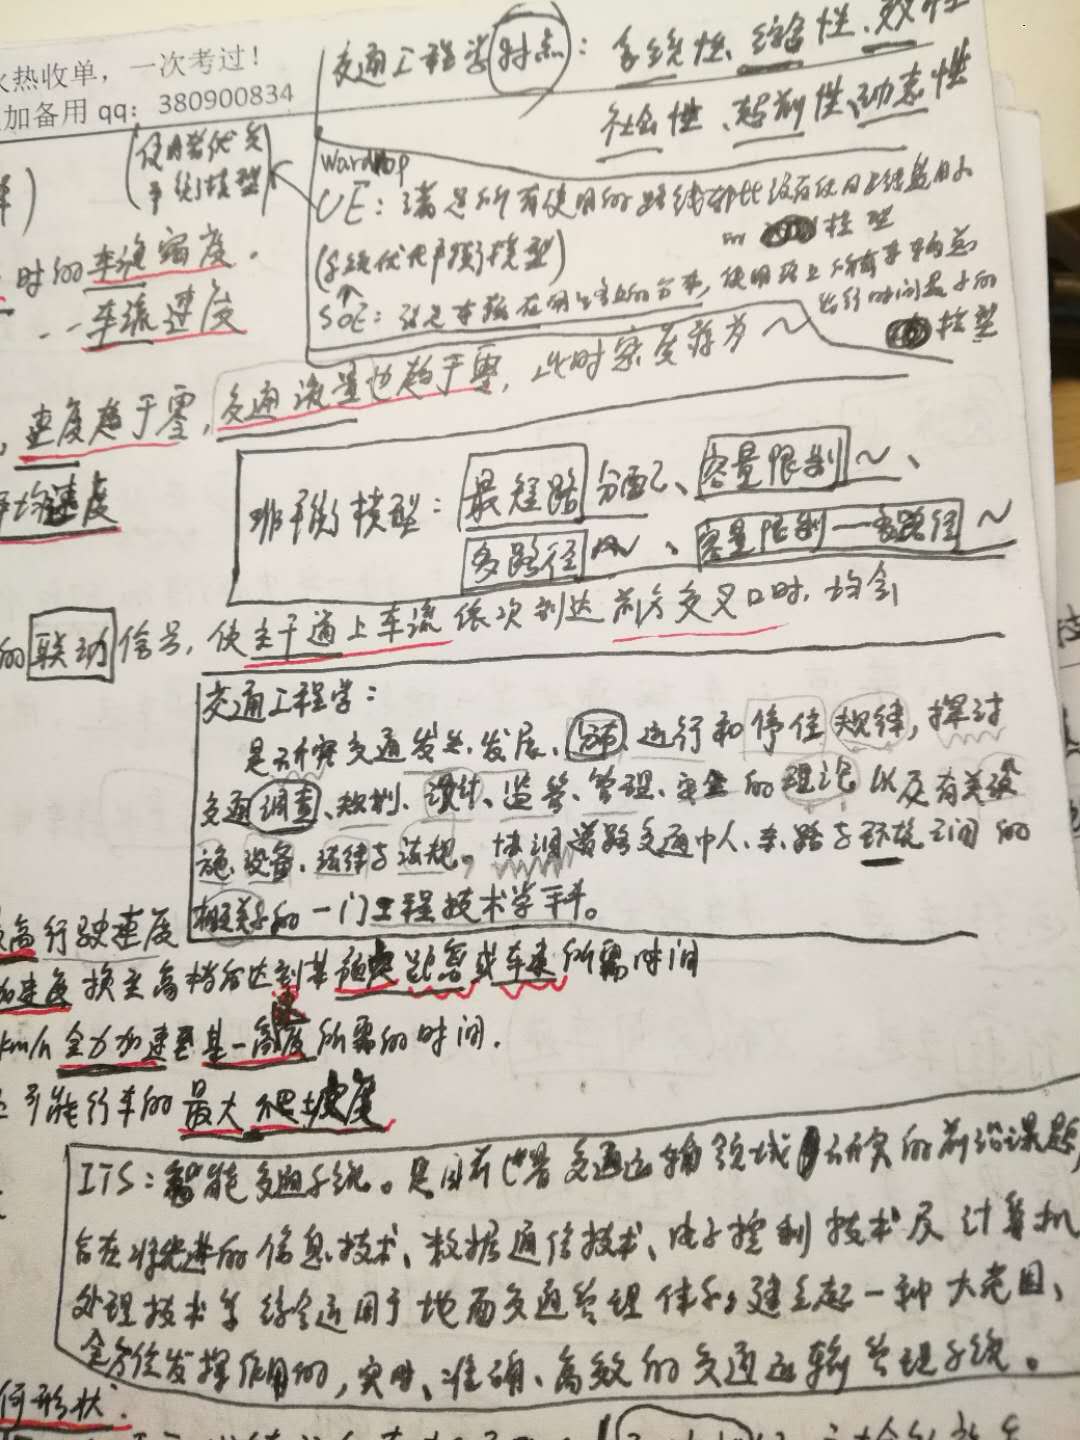 火热收单，一次考过！
加备用 qq：380900834
交通工程学特点：系统性、综合性、
社会性、超前性、动态性
(使用者优先
平衡模型)
Wardrop
UE：满足所有使用的路线都比没有使用路线费用小
的模型
(系统优化平衡模型)
SOE：
出行时间最小的
模型
时的车流密度.
车流速度
，速度趋于零，交通流量也趋于零，此时密度称为～
平均速度
非平衡模型：最短路分配、容量限制～、
多路径～、容量限制—多路径～
的联动信号，使主干道上车流依次到达前方交叉口时，均会
交通工程学：
是研究交通发生、发展、分布、运行和停住规律，探讨
交通调查、规划、设计、监管、管理、安全的理论以及有关设
施、设备、法律与法规。协调道路交通中人、车、路与环境之间的
相互关系的一门工程技术学科。
最高行驶速度
加速度换至高档后达到某预定距离或车速所需时间
km/h全力加速至某一高速度所需的时间.
能行车的最大爬坡度
ITS：智能交通系统。是目前世界交通运输领域研究的前沿课题，
旨在将先进的信息技术、数据通信技术、电子控制技术及计算机
处理技术等综合运用于地面交通管理体系，建立起一种大范围、
全方位发挥作用的，实时、准确、高效的交通运输管理系统。
何形状.